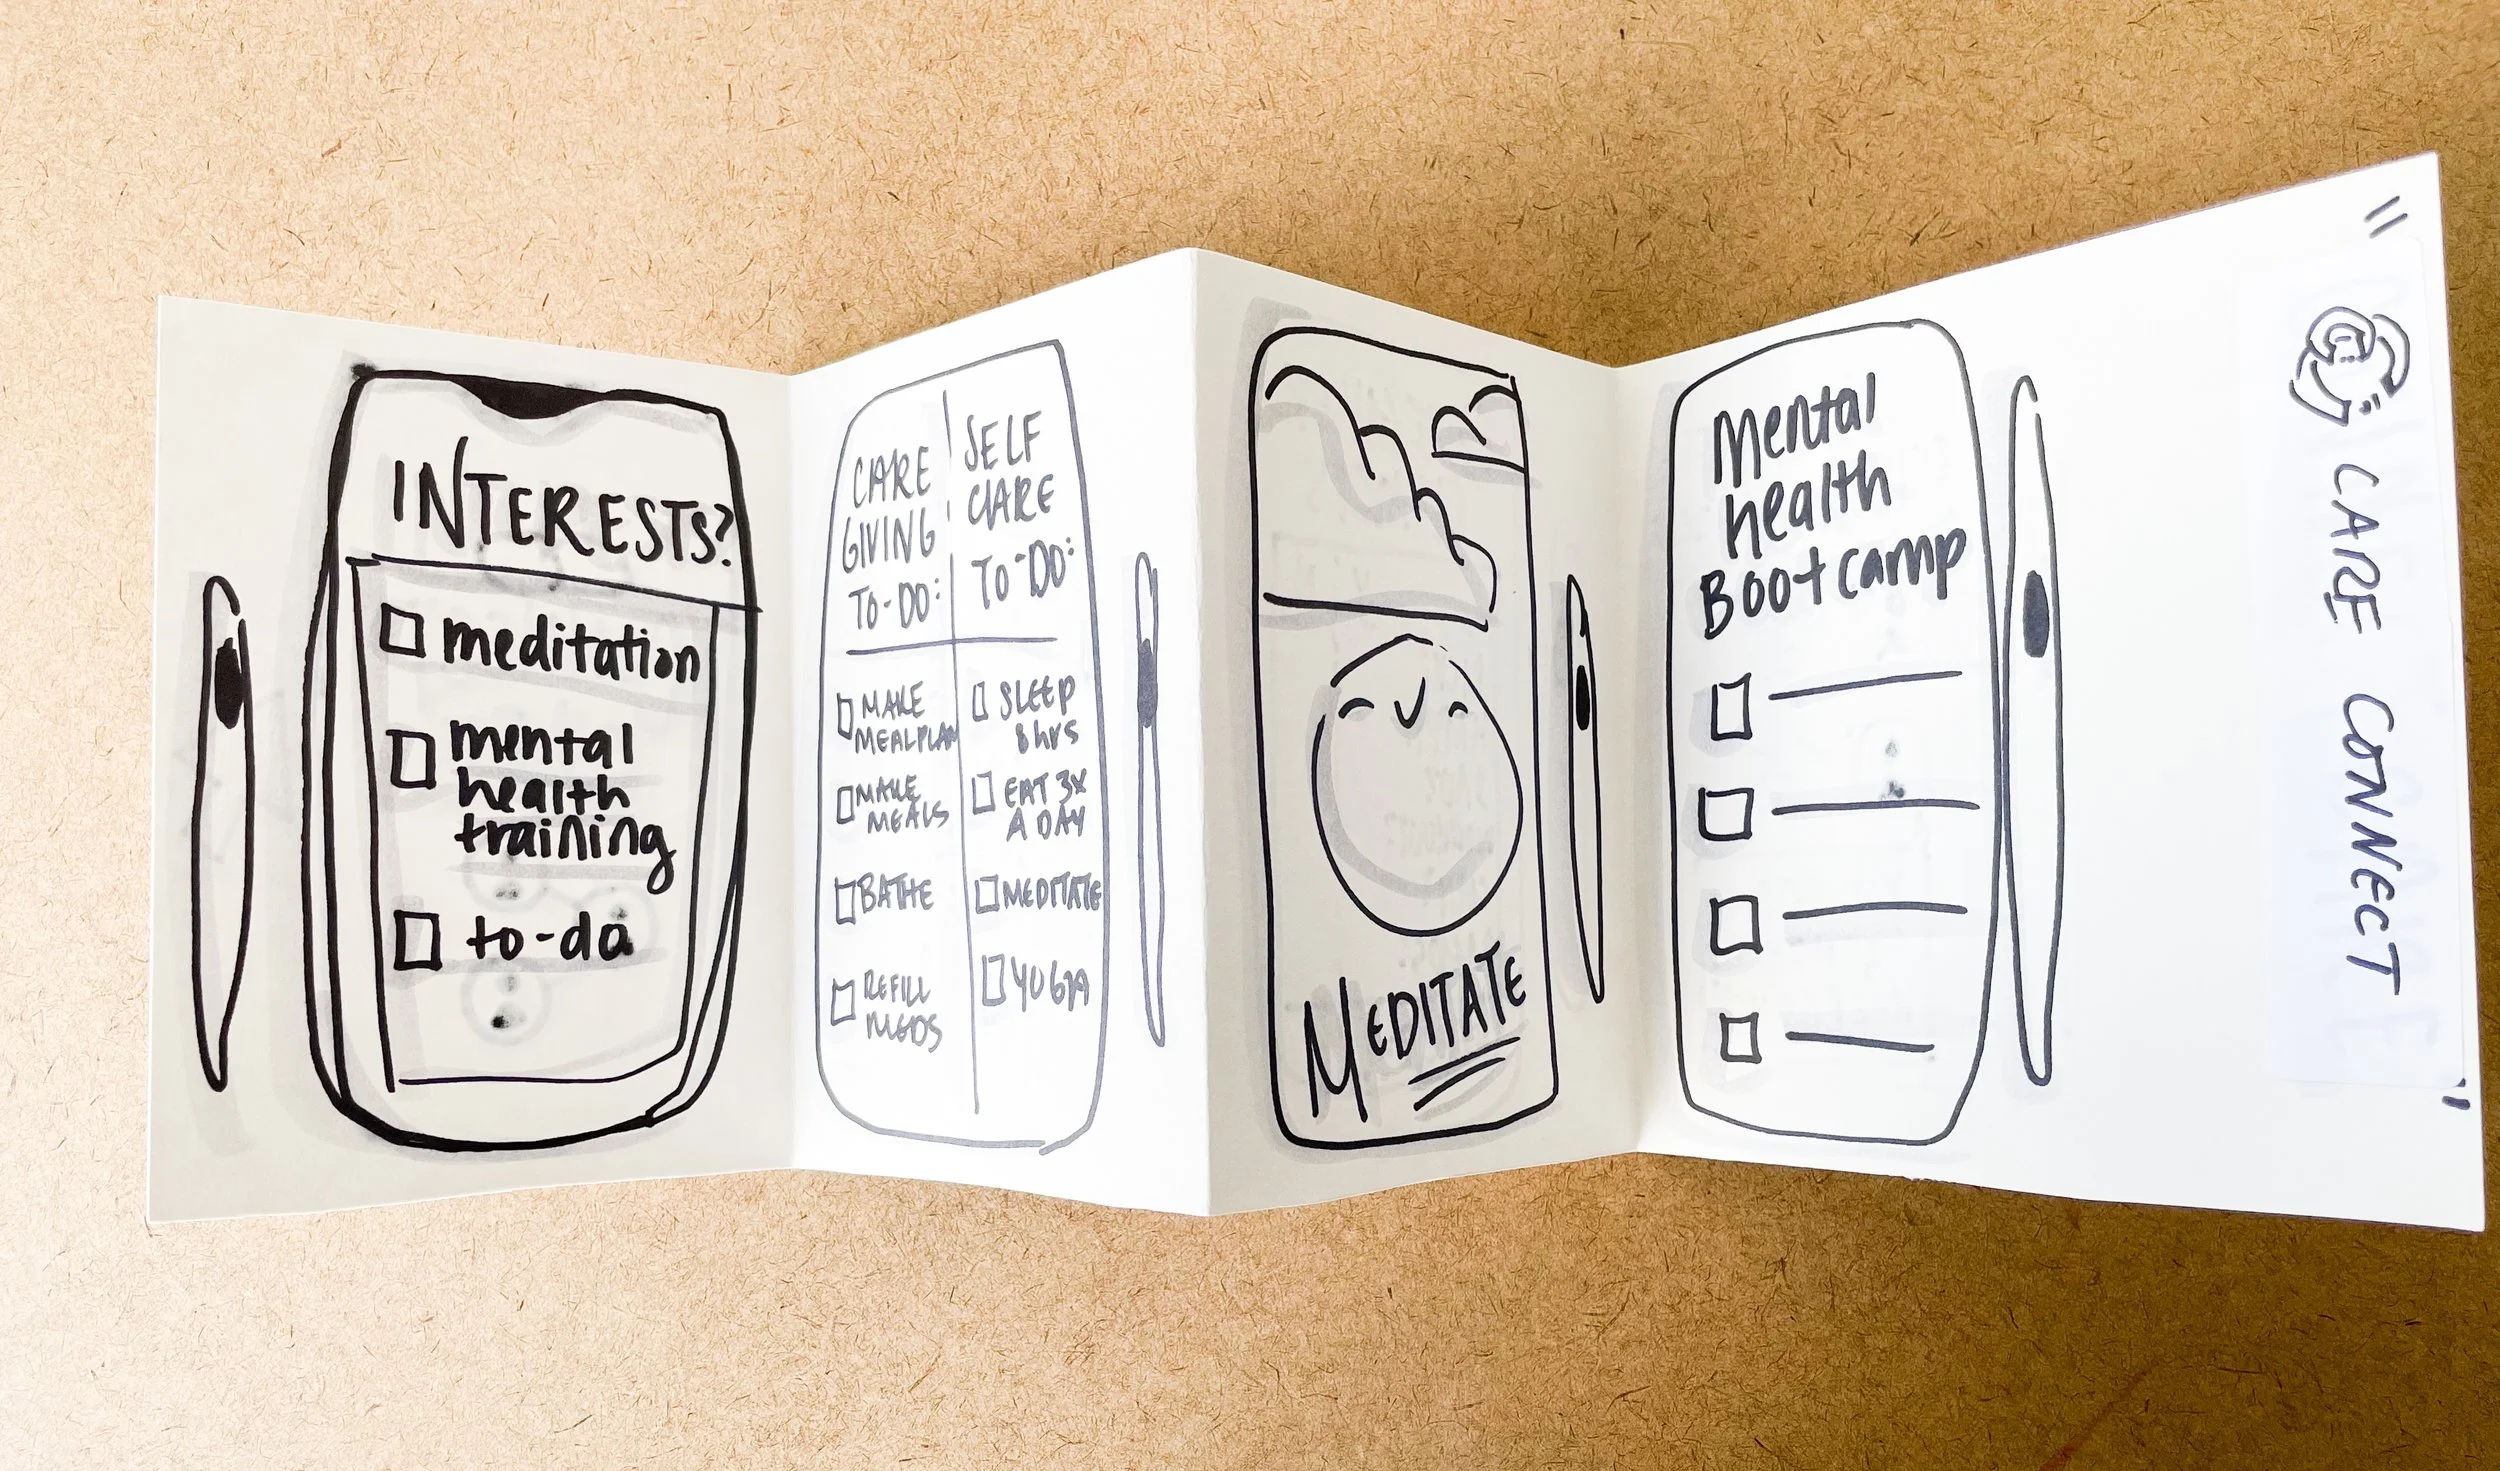 INTERESTS?
meditation
mental
health
training
to-do
CARE
GIVING
TO-DO:
MAKE
MEALPLAN
MAKE
MEALS
BATHE
REFILL
MEDS
SELF
CARE
TO-DO:
SLEEP
8 hrs
EAT 3X
A DAY
MEDITATE
YOGA
MEDITATE
Mental
health
Bootcamp
" CARE CONNECT "